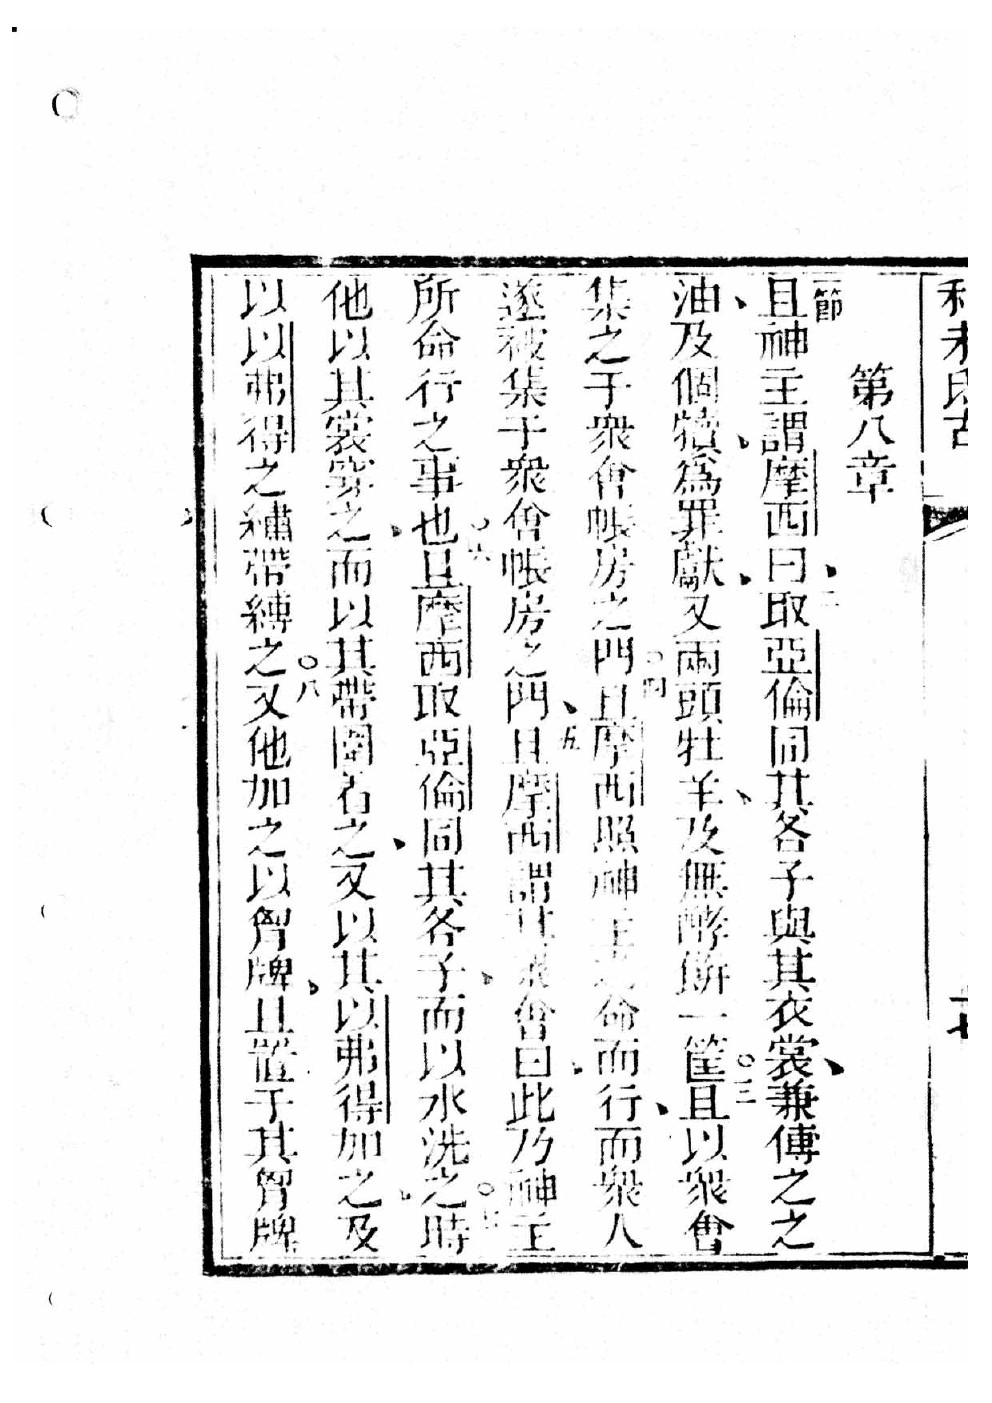 利未氏古
第八章
節
且神主謂摩西曰二取亞倫同其各子與其衣裳兼傅之之
油及個犢爲罪獻又兩頭牡羊及無酵餅一筐○三且以衆會
集之于衆會帳房之門○四且摩西照神主之命而行而衆人
遂被集于衆會帳房之門五且摩西謂其衆會曰此乃神主
所命行之事也○六且摩西取亞倫同其各子而以水洗之○七時
他以其裳穿之而以其帶圍着之又以其以弗得加之及
以以弗得之繡帶縛之○八又他加之以胷牌且置于其胷牌